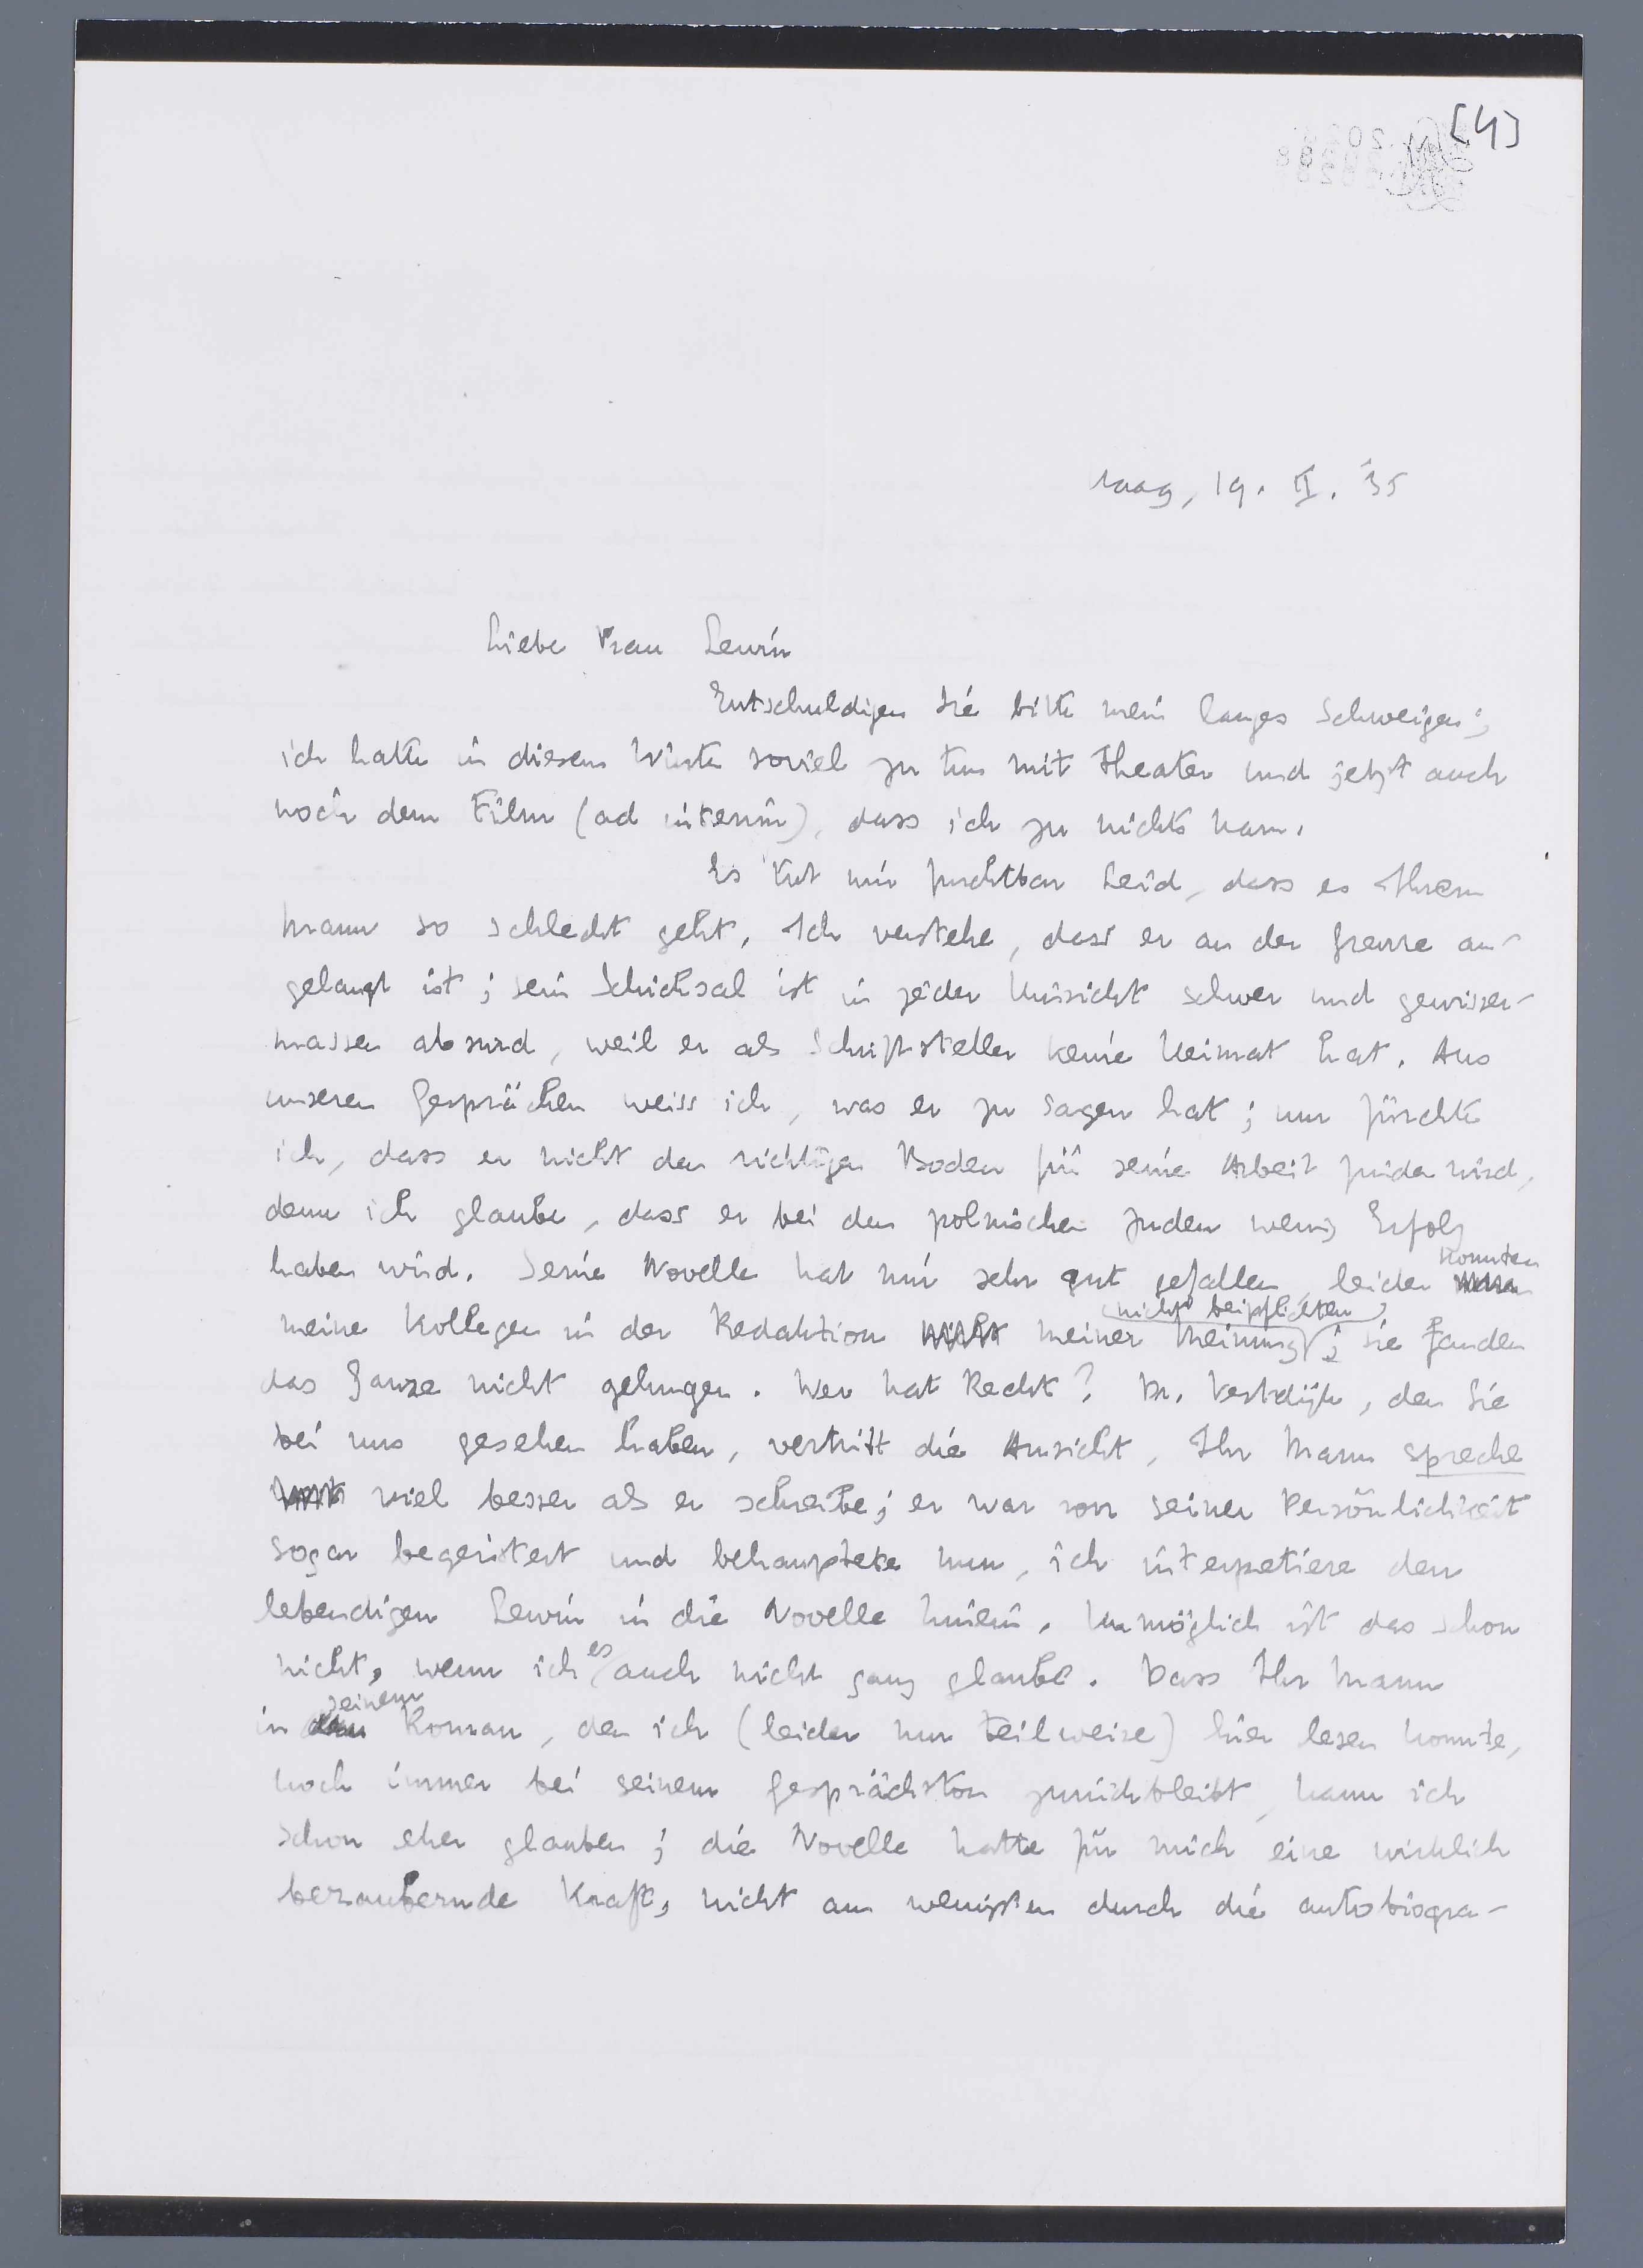 [4]
Haag, 19. II. '35
Liebe Frau Lewin
Entschuldigen Sie bitte mein langes Schweigen;
ich hatte in diesem Winter soviel zu tun mit Theater und jetzt auch
noch dem Film (ad interim), dass ich zu nichts kam.
Es tut mir furchtbar Leid, dass es Ihrem
Mann so schlecht geht. Ich verstehe, dass er an der Grenze an-
gelangt ist; sein Schicksal ist in jeder Hinsicht schwer und gewisser-
massen absurd, weil er als Schriftsteller keine Heimat hat. Aus
unseren Gesprächen weiss ich, was er zu sagen hat; nur fürchte
ich, dass er nicht den richtigen Boden für seine Arbeit finden wird,
denn ich glaube, dass er bei den polnischen Juden wenig Erfolg
haben wird. Seine Novelle hat mir sehr gut gefallen, leider konnten
meine Kollegen in der Redaktion meiner Meinung nicht beipflichten; sie fanden
das Ganze nicht gelungen. Wer hat Recht? Dr. Vestdijk, den Sie
bei uns gesehen haben, vertritt die Ansicht, Ihr Mann spreche
viel besser als er schreibe; er war von seiner Persönlichkeit
sogar begeistert und behauptete nun, ich interpretiere den
lebendigen Lewin in die Novelle hinein. Unmöglich ist das schon
nicht, wenn ich es auch nicht ganz glaube. Dass Ihr Mann
in seinem Roman, den ich (leider nur teilweise) hier lesen konnte,
noch immer bei seinem Gesprächston zurückbleibt, kann ich
schon eher glauben; die Novelle hatte für mich eine wirklich
bezaubernde Kraft, nicht am wenigsten durch die autobiogra-